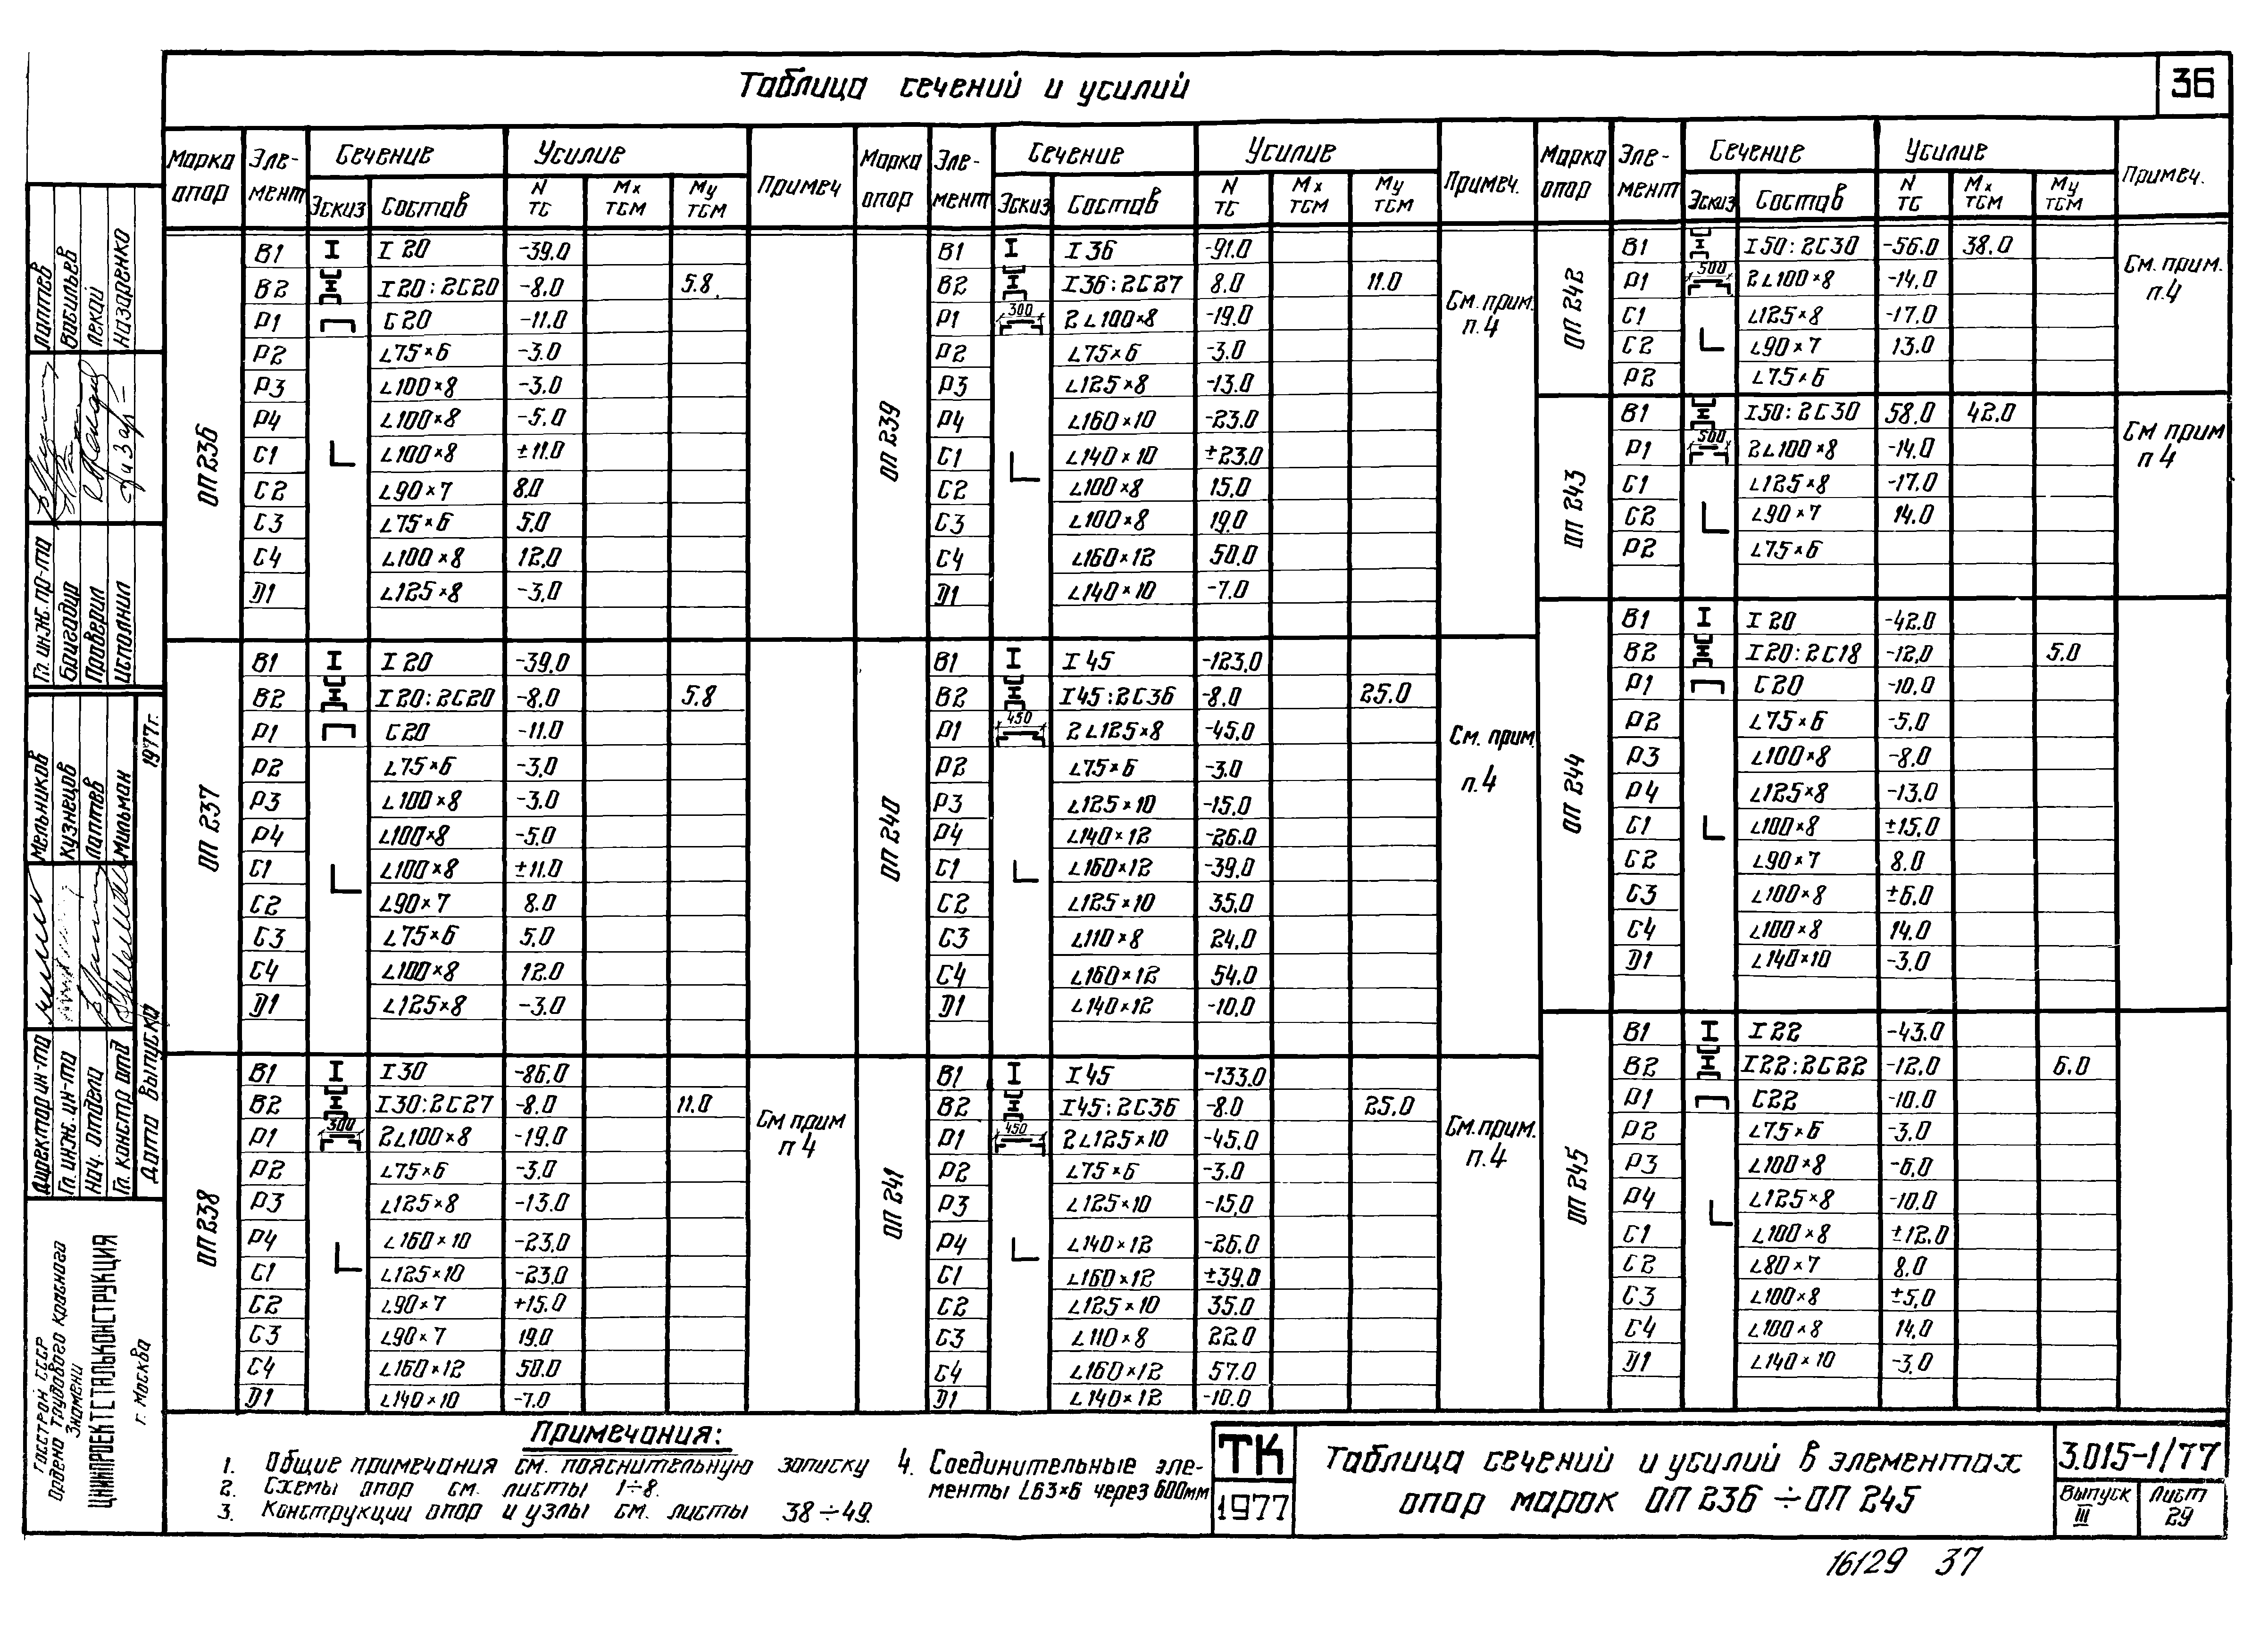 Таблица сечений и усилий
36
Марка опор | Эле-мент | Сечение | Усилие | Примеч
Эскиз | Состав | N тс | Mx тсм | My тсм
ОП 236
В1 I 20 -39.0
В2 I 20:2С20 -8.0 5.8
Р1 С20 -11.0
Р2 L75×6 -3.0
Р3 L100×8 -3.0
Р4 L100×8 -5.0
С1 L100×8 ±11.0
С2 L90×7 8.0
С3 L75×6 5.0
С4 L100×8 12.0
Д1 L125×8 -3.0
ОП 237
В1 I 20 -39.0
В2 I 20:2С20 -8.0 5.8
Р1 С20 -11.0
Р2 L75×6 -3.0
Р3 L100×8 -3.0
Р4 L100×8 -5.0
С1 L100×8 ±11.0
С2 L90×7 8.0
С3 L75×6 5.0
С4 L100×8 12.0
Д1 L125×8 -3.0
ОП 238
В1 I 30 -86.0
В2 I 30:2С27 -8.0 11.0
Р1 300 2L100×8 -19.0
Р2 L75×6 -3.0
Р3 L125×8 -13.0
Р4 L160×10 -23.0
С1 L125×10 -23.0
С2 L90×7 +15.0
С3 L90×7 19.0
С4 L160×12 50.0
Д1 L140×10 -7.0
См прим
п 4
Марка опор | Эле-мент | Сечение | Усилие | Примеч.
Эскиз | Состав | N тс | Mx тсм | My тсм
ОП 239
В1 I 36 -91.0
В2 I 36:2С27 8.0 11.0
Р1 300 2L100×8 -19.0
Р2 L75×6 -3.0
Р3 L125×8 -13.0
Р4 L160×10 -23.0
С1 L140×10 ±23.0
С2 L100×8 15.0
С3 L100×8 19.0
С4 L160×12 50.0
Д1 L140×10 -7.0
См. прим.
п. 4
ОП 240
В1 I 45 -123.0
В2 I 45:2С36 -8.0 25.0
Р1 450 2L125×8 -45.0
Р2 L75×6 -3.0
Р3 L125×10 -15.0
Р4 L140×12 -26.0
С1 L160×12 -39.0
С2 L125×10 35.0
С3 L110×8 24.0
С4 L160×12 54.0
Д1 L140×12 -10.0
См. прим.
п. 4
ОП 241
В1 I 45 -133.0
В2 I 45:2С36 -8.0 25.0
Р1 450 2L125×10 -45.0
Р2 L75×6 -3.0
Р3 L125×10 -15.0
Р4 L140×12 -26.0
С1 L160×12 ±39.0
С2 L125×10 35.0
С3 L110×8 22.0
С4 L160×12 57.0
Д1 L140×12 -10.0
См. прим.
п. 4
Марка опор | Эле-мент | Сечение | Усилие | Примеч.
Эскиз | Состав | N тс | Mx тсм | My тсм
ОП 242
В1 I 50:2С30 -56.0 38.0
Р1 500 2L100×8 -14.0
С1 L125×8 -17.0
С2 L90×7 13.0
Р2 L75×6
См. прим.
п. 4
ОП 243
В1 I 50:2С30 58.0 42.0
Р1 500 2L100×8 -14.0
С1 L125×8 -17.0
С2 L90×7 14.0
Р2 L75×6
См прим
п 4
ОП 244
В1 I 20 -42.0
В2 I 20:2С18 -12.0 5.0
Р1 С20 -10.0
Р2 L75×6 -5.0
Р3 L100×8 -8.0
Р4 L125×8 -13.0
С1 L100×8 ±15.0
С2 L90×7 8.0
С3 L100×8 ±6.0
С4 L100×8 14.0
Д1 L140×10 -3.0
ОП 245
В1 I 22 -43.0
В2 I 22:2С22 -12.0 6.0
Р1 С22 -10.0
Р2 L75×6 -3.0
Р3 L100×8 -6.0
Р4 L125×8 -10.0
С1 L100×8 ±12.0
С2 L80×7 8.0
С3 L100×8 ±5.0
С4 L100×8 14.0
Д1 L140×10 -3.0
Примечания:
1. Общие примечания см. пояснительную записку
2. Схемы опор см. листы 1÷8.
3. Конструкции опор и узлы см. листы 38÷49.
4. Соединительные эле-
менты L63×6 через 600мм
ТК
1977
Таблица сечений и усилий в элементах
опор марок ОП 236 ÷ ОП 245
3.015-1/77
Выпуск III
Лист 29
16129 37
Гл. инж. пр-та Лаптев
Бригадир Васильев
Проверил Лекай
Исполнил Назаренко
Директор ин-та Мельников
Гл. инж. ин-та Кузнецов
Нач. отдела Лаптев
Гл. констр отд Мильман
Дата выпуска 1977г.
Госстрой СССР
Ордена Трудового Красного
Знамени
ЦНИИПРОЕКТСТАЛЬКОНСТРУКЦИЯ
г. Москва